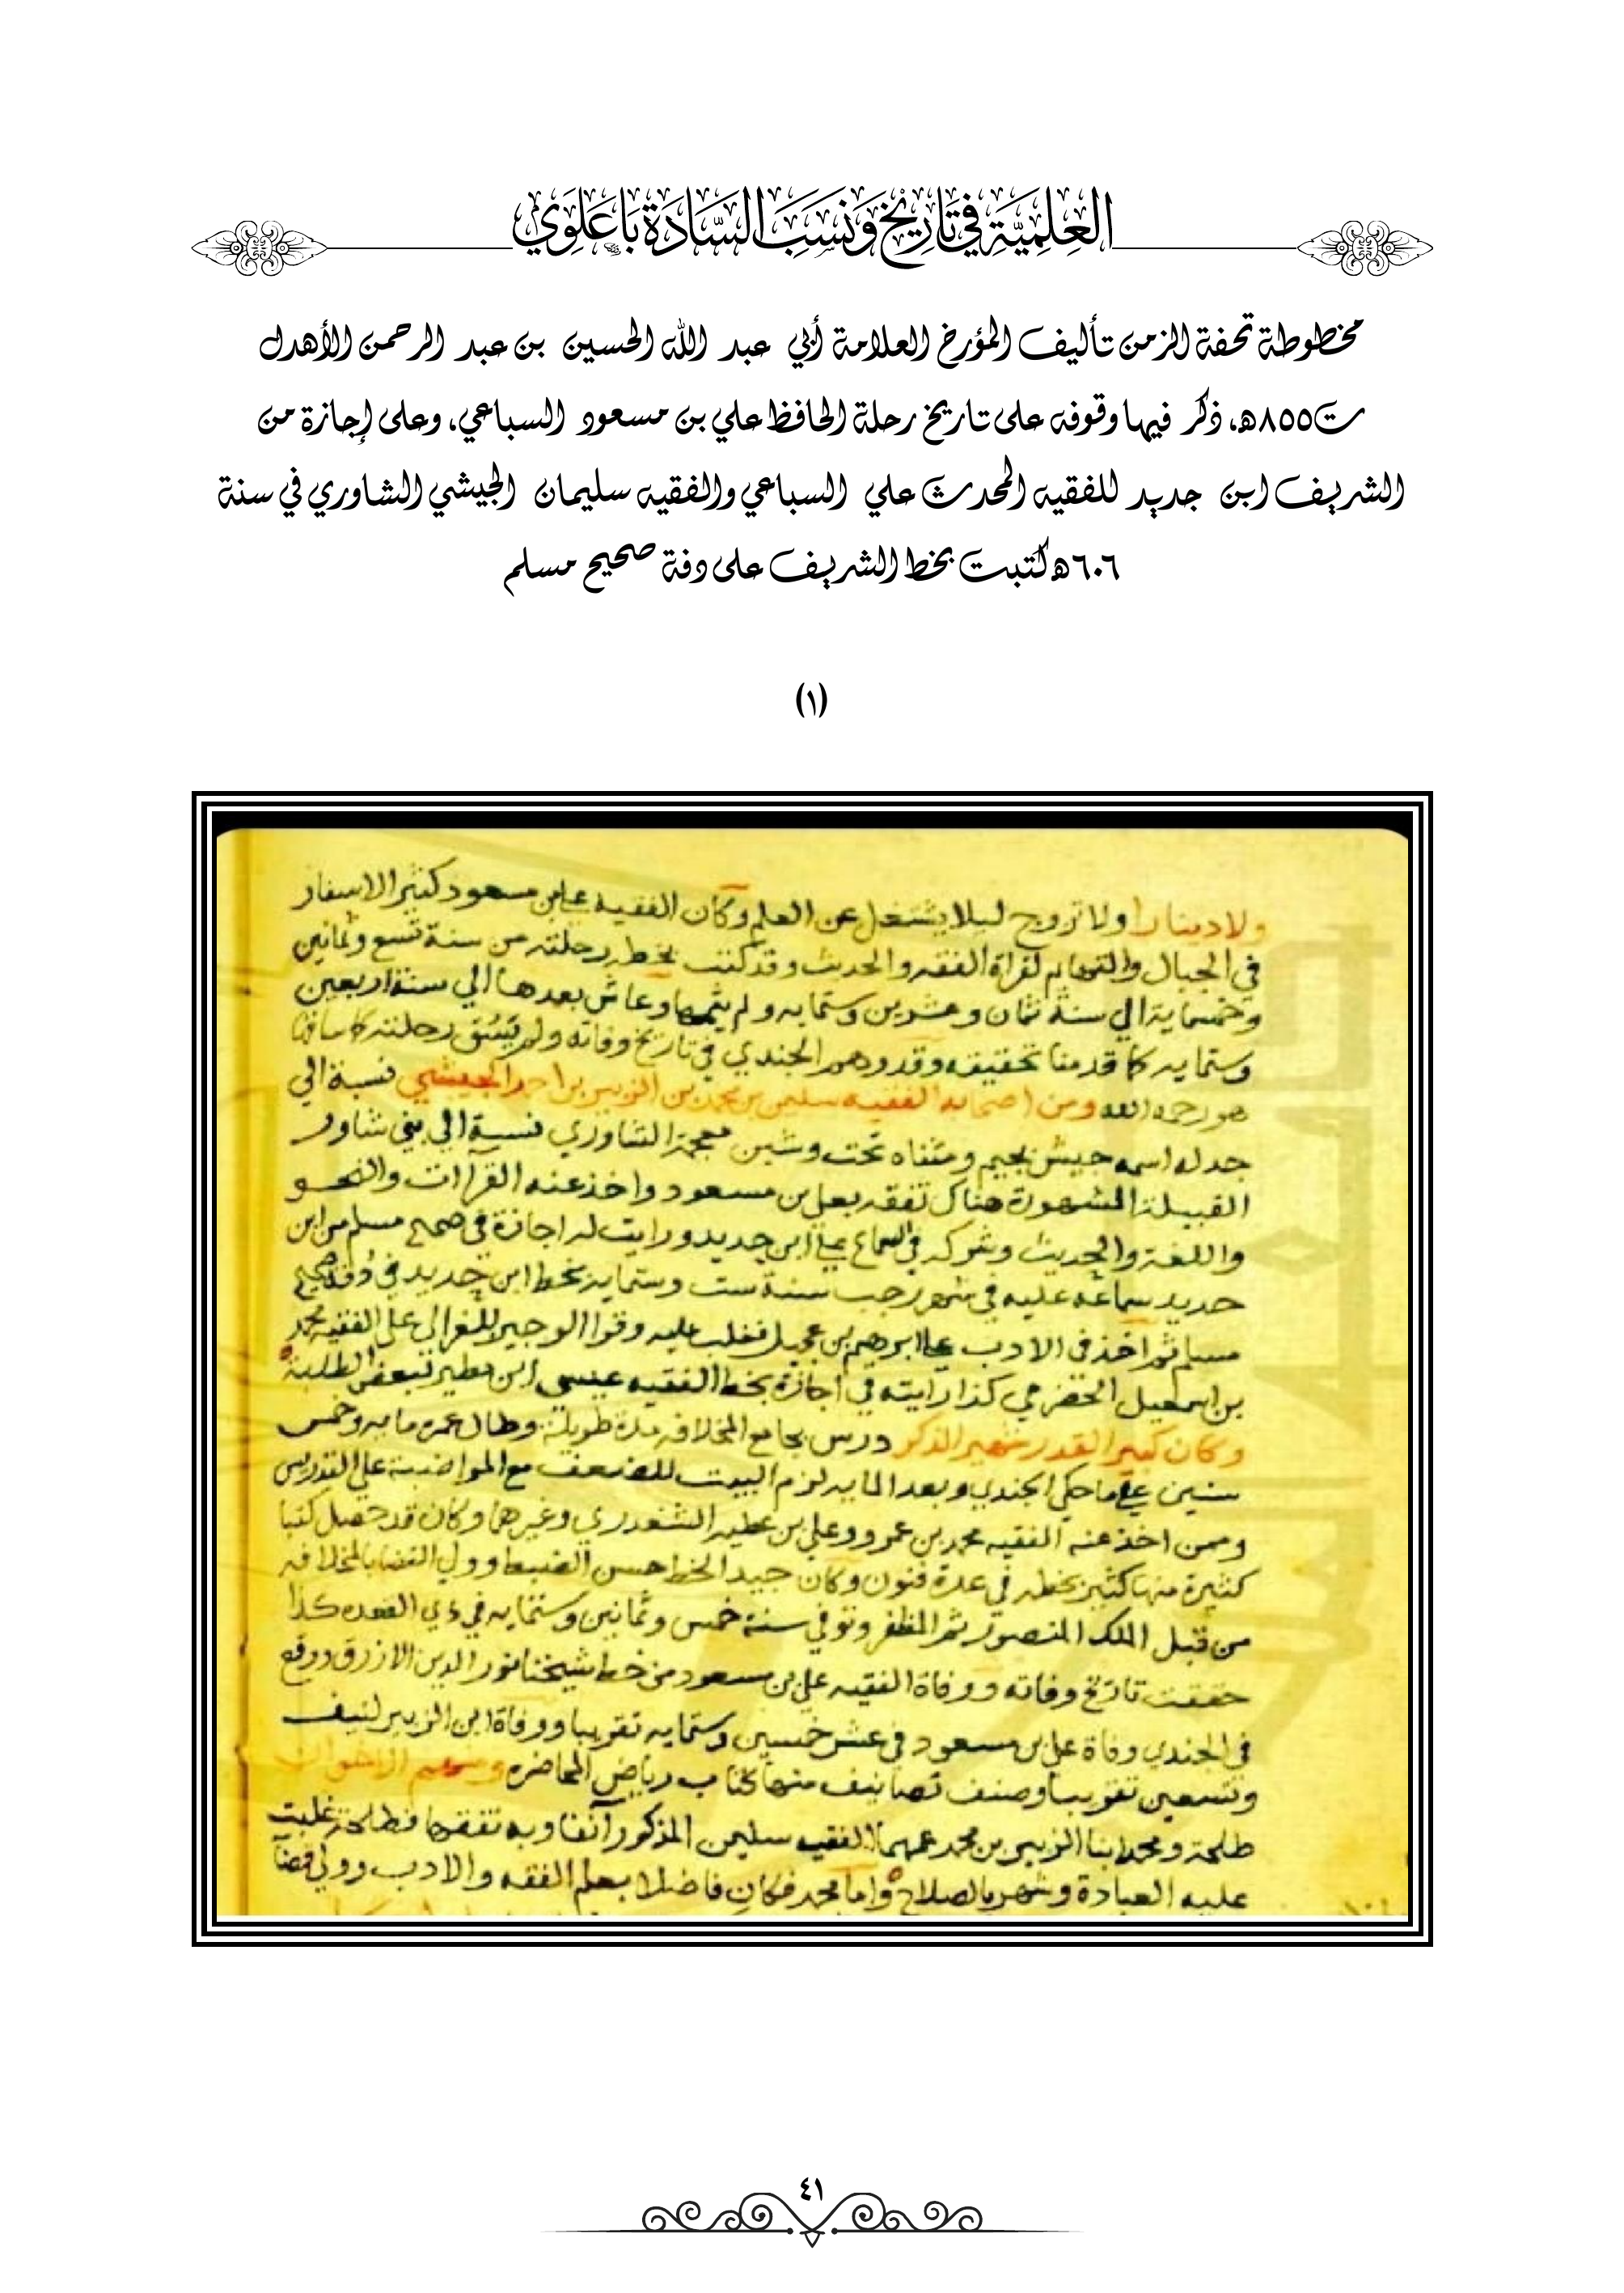 العِلمِيَّة في تَارِيخ وَنَسَب السَّادَة بَاعَلَوِي
مخطوطة تحفة الزمن تأليف المؤرخ العلامة أبي عبد الله الحسين بن عبد الرحمن الأهدل
ت٨٥٥هـ، ذكر فيها وقوفه على تاريخ رحلة الحافظ علي بن مسعود السباعي، وعلى إجازة من
الشريف ابن جديد للفقيه المحدث علي السباعي والفقيه سليمان الجيشي الشاوري في سنة
٦٠٦هـ كتبت بخط الشريف على دفة صحيح مسلم
(١)
ولا دينارا ولا تزوج ليلا يشتغل عن العلم وكان الفقيه علي بن مسعود كثير الاسفار
في الجبال والتهايم لقراة الفقه والحديث وقد كتب بخطه رحلته من سنة تسع وثمانين
وخمسماية الي سنة ثمان وعشرين وستمايه ولم يتمها وعاش بعدها الي سنة اربعين
وستمايه كما قدمنا تحقيقه وقد وهم الجندي في تاريخ وفاته ولم يسق رحلته كما ساقها
هو رحمه الله ومن اصحابه الفقيه سليمن بن محمد بن الزبير بن احمد الجيشي نسبة الي
جد له اسمه جيش بجيم ومثناه تحت وشين معجمة الشاوري نسبة الي بني شاور
القبيلة المشهورة هناك تفقه بعلي بن مسعود واخذ عنه القراات والنحو
واللغة والحديث وشركه في السماع علي ابن جديد ورايت له اجازة في صحيح مسلم من ابن
جديد سماعه عليه في شهر رجب سنة ست وستمايه بخط ابن جديد في دفة صحيح
مسلم ثم اخذ في الادب علي ابرهيم بن عجيل فغلب عليه وقرا الوجيز للغزالي على الفقيه محمد
بن اسمعيل الحضرمي كذا رايته في اجازة بخط الفقيه عيسى ابن مطير لبعض الطلبة
وكان كبير القدر شهير الذكر درس بجامع المخلافه مدة طويلة وطال عمره مايه وخمس
سنين علي ما حكي الجندي وبعد المايه لزم البيت للضعف مع المواضبة علي التدريس
وممن اخذ عنه الفقيه محمد بن عمرو وعلي بن عطيه الشغدري وغيرهما وكان قد حصل كتبا
كثيرة منها كثير بخطه في عدة فنون وكان جيد الخط حسن الضبط وولي القضا بالمخلافه
من قبل الملك المنصور ثم المظفر وتوفي سنة خمس وثمانين وستمايه في ذي القعده كذا
حققت تاريخ وفاته ووفاة الفقيه علي بن مسعود من خط شيخنا نور الدين الازرق ووقع
في الجندي وفاة علي بن مسعود في عشر خمسين وستمايه تقريبا ووفاة ابن الزبير لنيف
وتسعين تقريبا وصنف تصانيف منها كتاب رياض المحاضره ومنهم الاخوان
طلحة ومحمد ابنا الزبير بن محمد عمهما الفقيه سليمن المذكور آنفا وبه تفقها فطلحة غلبت
عليه العبادة وشهر بالصلاح واما محمد فكان فاضلا بعلم الفقه والادب وولي قضآ
٤١